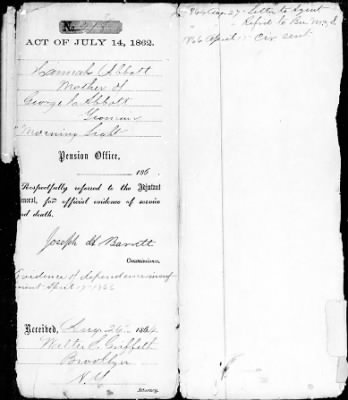 ACT OF JULY 14, 1862.
Hannah Abbott
Mother of
George Abbott
Yeoman
"Morning Light
Pension Office,
186
Respectfully referred to the Adjutant
General, for official evidence of service
and death.
Joseph H Barrett
Commissioner.
Evidence of dependence
April 17 1866
Received, Aug 26 1864
Walter S. Griffith
Brooklyn
N.Y.
Attorney.
Aug 27 - Letter to Agent
Refd to Bu M. & S
1866 April 17 Cir sent